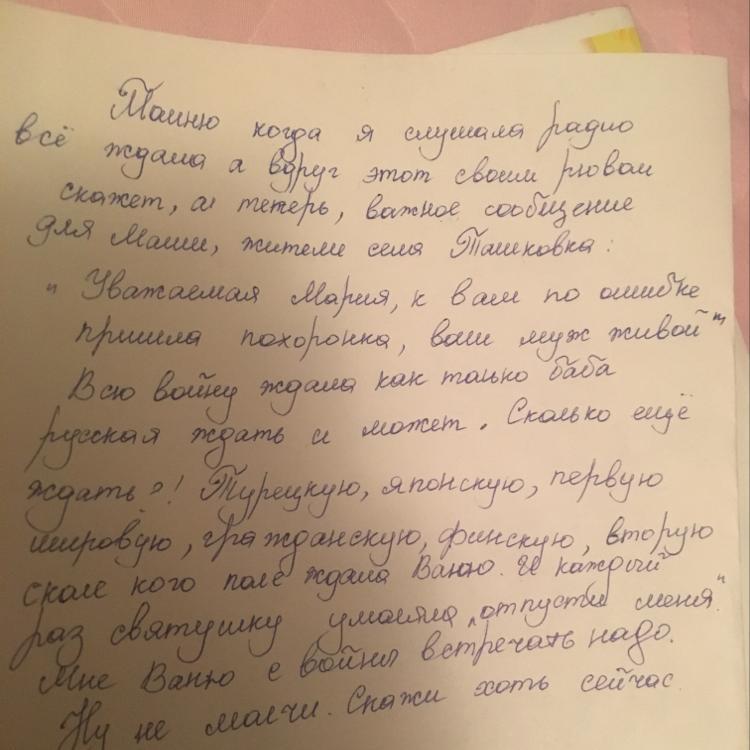 Помню когда я слушала радио
всё ждала а вдруг этот своим рювом
скажет, а теперь, важное сообщение
для Маши, жители села Ташковка:
"Уважаемая Мария, к вам по ошибке
пришла похоронка, ваш муж живой"
Всю войну ждала как только баба
русская ждать и может. Сколько ещё
ждать?! Турецкую, японскую, первую
мировую, гражданскую, финскую, вторую
сколе кого поле ждала Ваню. И каждый
раз святушку умаяла "отпусти меня".
Мне Ваню с войны встречать надо.
Ну не молчи. Скажи хоть сейчас.